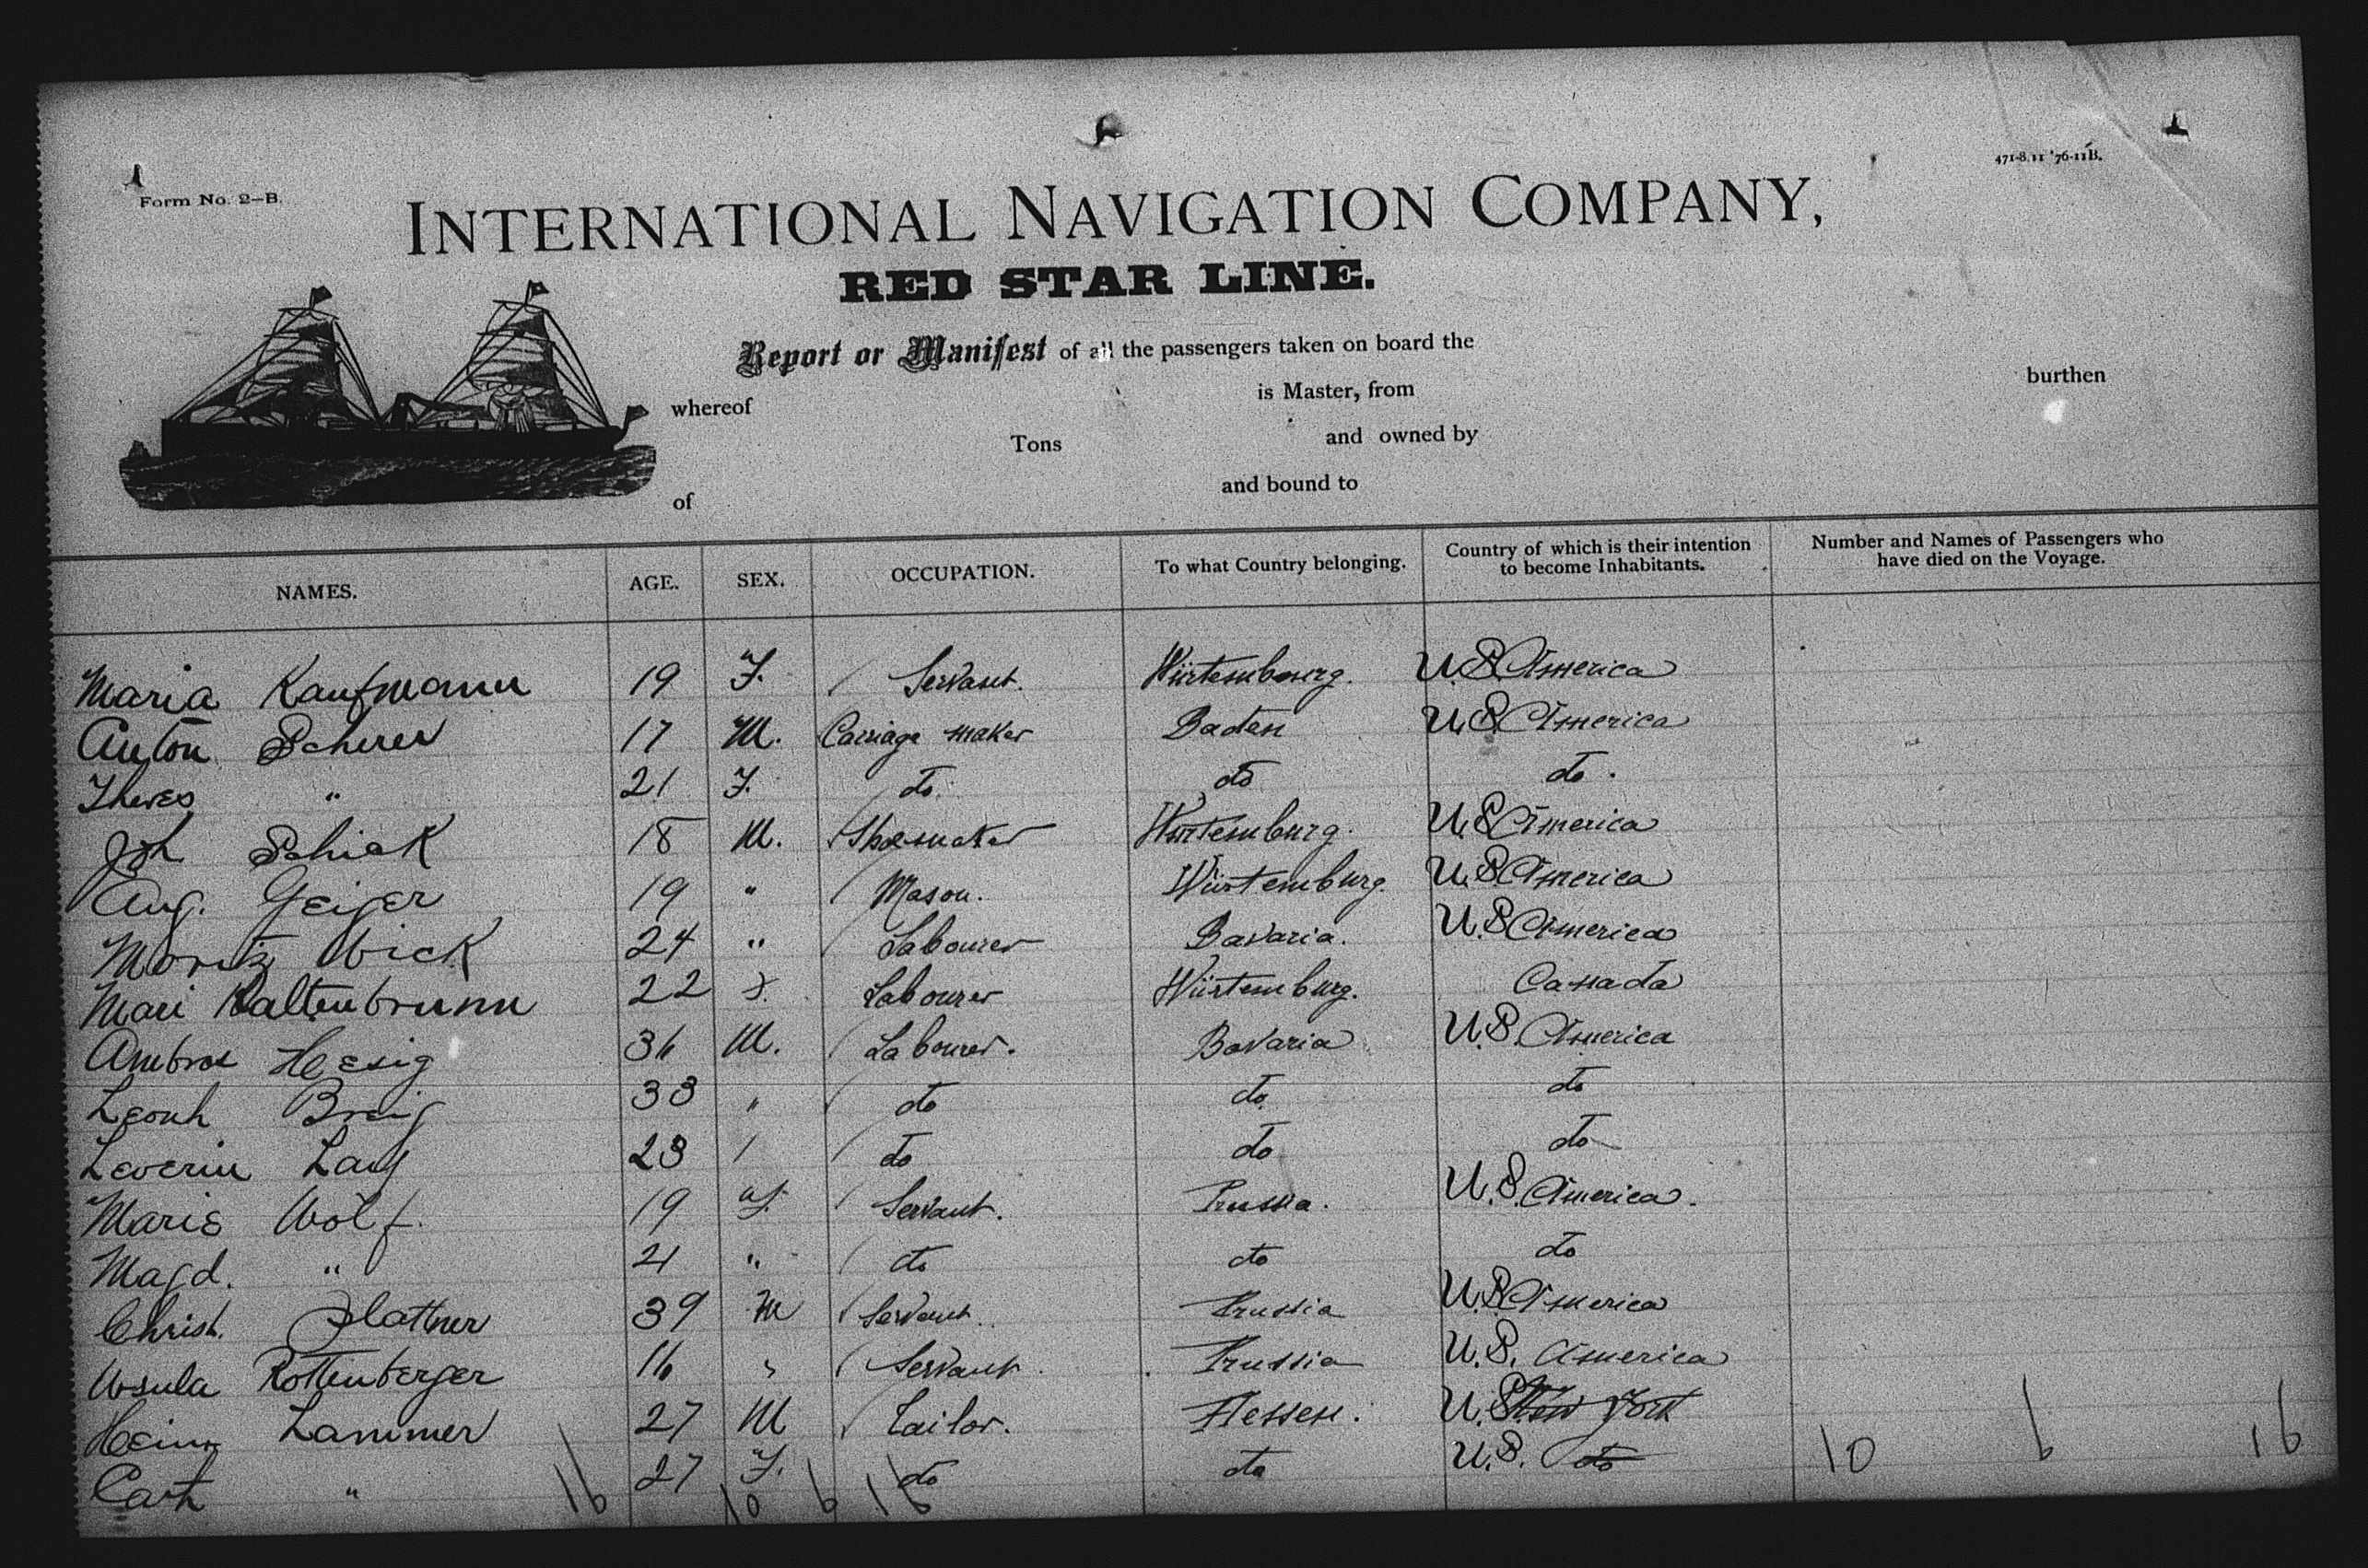 471-8, 11 '76-11B.
Form No. 2-B.
INTERNATIONAL NAVIGATION COMPANY,
RED STAR LINE.
Report or Manifest of all the passengers taken on board the
whereof is Master, from burthen
Tons and owned by
of and bound to
NAMES. AGE. SEX. OCCUPATION. To what Country belonging. Country of which is their intention to become Inhabitants. Number and Names of Passengers who have died on the Voyage.
Maria Kaufmann 19 F. Servant. Würtembourg. U.S. America
Anton Scherer 17 M. Carriage maker Baden U.S. America
Theres " 21 F. do do do.
Joh Schick 18 M. Shoemaker Würtemburg. U.S. America
Aug. Geiger 19 " Mason. Würtemburg. U.S. America
Moritz Wick 24 " Labourer Bavaria. U.S. America
Mari Kaltenbrunn 22 F. Labourer Würtemburg. Canada
Ambros Hesig 36 M. Labourer. Bavaria U.S. America
Leonh Breig 33 " do do do
Leverin Lang 23 do do do
Marie Wolf. 19 F. Servant. Prussia. U.S. America.
Magd. " 21 " do do do
Christ. Plattner 39 M Servant. Prussia U.S. America
Ursula Rottenberger 16 " Servant. Prussia U.S. America
Heinr Lammer 27 M Tailor. Hessen. U.S. New York
Cath " 27 F. do do U.S. do
16 10 6 16 10 6 16